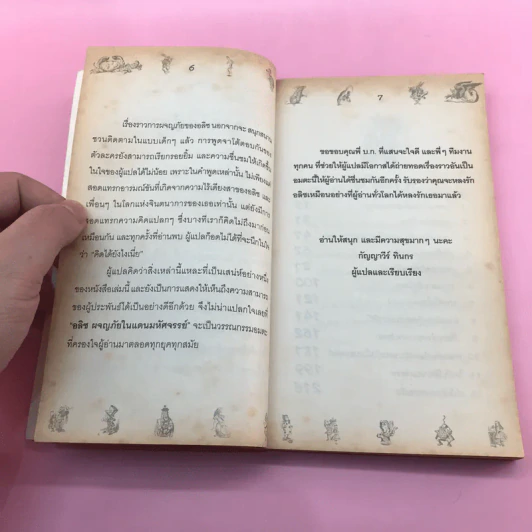 6
เรื่องราวการผจญภัยของอลิซ นอกจากจะ สนุกสนาน
ชวนติดตามในแบบเด็กๆ แล้ว การพูดจาโต้ตอบกันของ
ตัวละครยังสามารถเรียกรอยยิ้ม และความชื่นชมให้เกิดขึ้น
ในใจของผู้แปลได้ไม่น้อย เพราะในคำพูดเหล่านั้น ไม่เพียงแต่
สอดแทรกอารมณ์ขันที่เกิดจากความไร้เดียงสาของอลิซ และ
เพื่อนๆ ในโลกแห่งจินตนาการของเธอเท่านั้น แต่ยังมีการ
สอดแทรกความคิดแปลกๆ ซึ่งบางทีเราก็คิดไม่ถึงมาก่อน
เหมือนกัน และทุกครั้งที่อ่านพบ ผู้แปลก็อดไม่ได้ที่จะนึกในใจ
ว่า "คิดได้ยังไงเนี่ย"
ผู้แปลคิดว่าสิ่งเหล่านี้แหละที่เป็นเสน่ห์อย่างหนึ่ง
ของหนังสือเล่มนี้ และยังเป็นการแสดงให้เห็นถึงความสามารถ
ของผู้ประพันธ์ได้เป็นอย่างดีอีกด้วย จึงไม่น่าแปลกใจเลยที่
"อลิซ ผจญภัยในแดนมหัศจรรย์" จะเป็นวรรณกรรมอมตะ
ที่ครองใจผู้อ่านมาตลอดทุกยุคทุกสมัย
7
ขอขอบคุณพี่ บ.ก. ที่แสนจะใจดี และพี่ๆ ทีมงาน
ทุกคน ที่ช่วยให้ผู้แปลมีโอกาสได้ถ่ายทอดเรื่องราวอันเป็น
อมตะนี้ให้ผู้อ่านได้ชื่นชมกันอีกครั้ง รับรองว่าคุณจะหลงรัก
อลิซเหมือนอย่างที่ผู้อ่านทั่วโลกได้หลงรักเธอมาแล้ว
อ่านให้สนุก และมีความสุขมากๆ นะคะ
กัญญาวีร์ ทินกร
ผู้แปลและเรียบเรียง